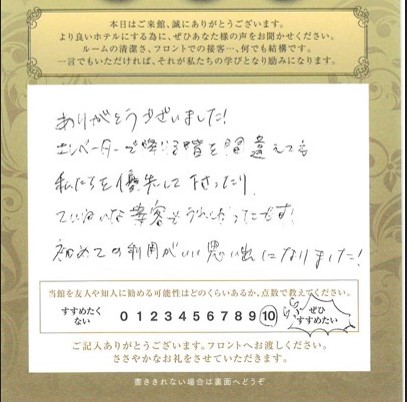 本日はご来館、誠にありがとうございます。
より良いホテルにする為に、ぜひあなた様の声をお聞かせください。
ルームの清潔さ、フロントでの接客…、何でも結構です。
一言でもいただければ、それが私たちの学びとなり励みになります。
ありがとうございました!
エレベーターで降りる階を間違えても
私たちを優先して下さったり、
ていねいな接客もうれしかったです!
初めての利用がいい思い出になりました!
当館を友人や知人に勧める可能性はどのくらいあるか、点数で教えてください。
すすめたくない 0 1 2 3 4 5 6 7 8 9 10 ぜひすすめたい
ご記入ありがとうございます。フロントへお渡しください。
ささやかなお礼をさせていただきます。
書ききれない場合は裏面へどうぞ